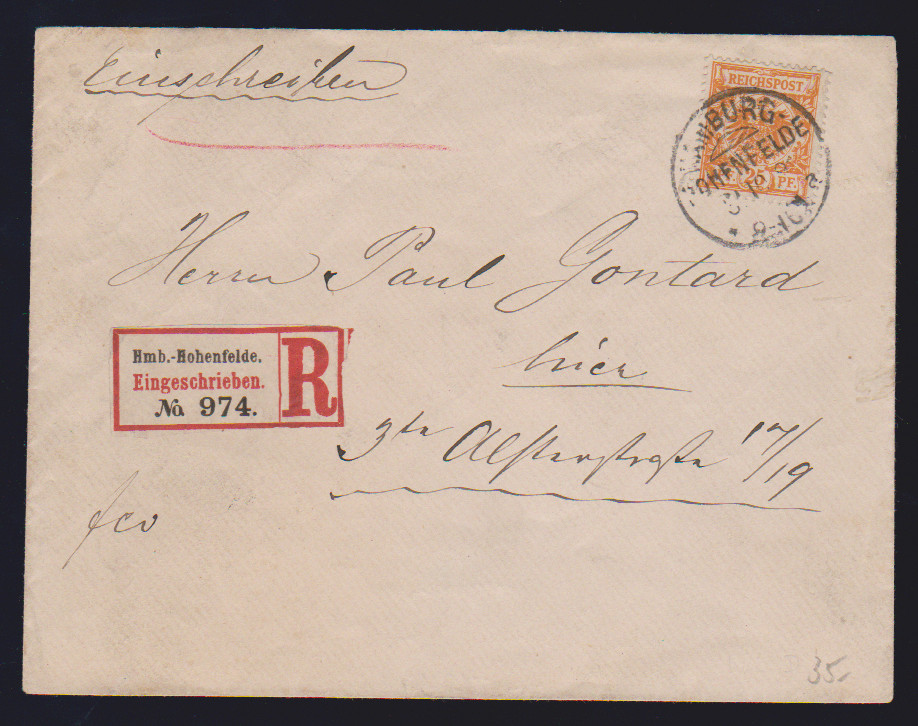 Einschreiben
REICHSPOST
25 PF.
HAMBURG-E
HOHENFELDE
8-10V
Herrn Paul Gontard
hier
Hmb.-Hohenfelde.
Eingeschrieben.
No 974.
R
3te Alsterstraße 17/19
fco
35.